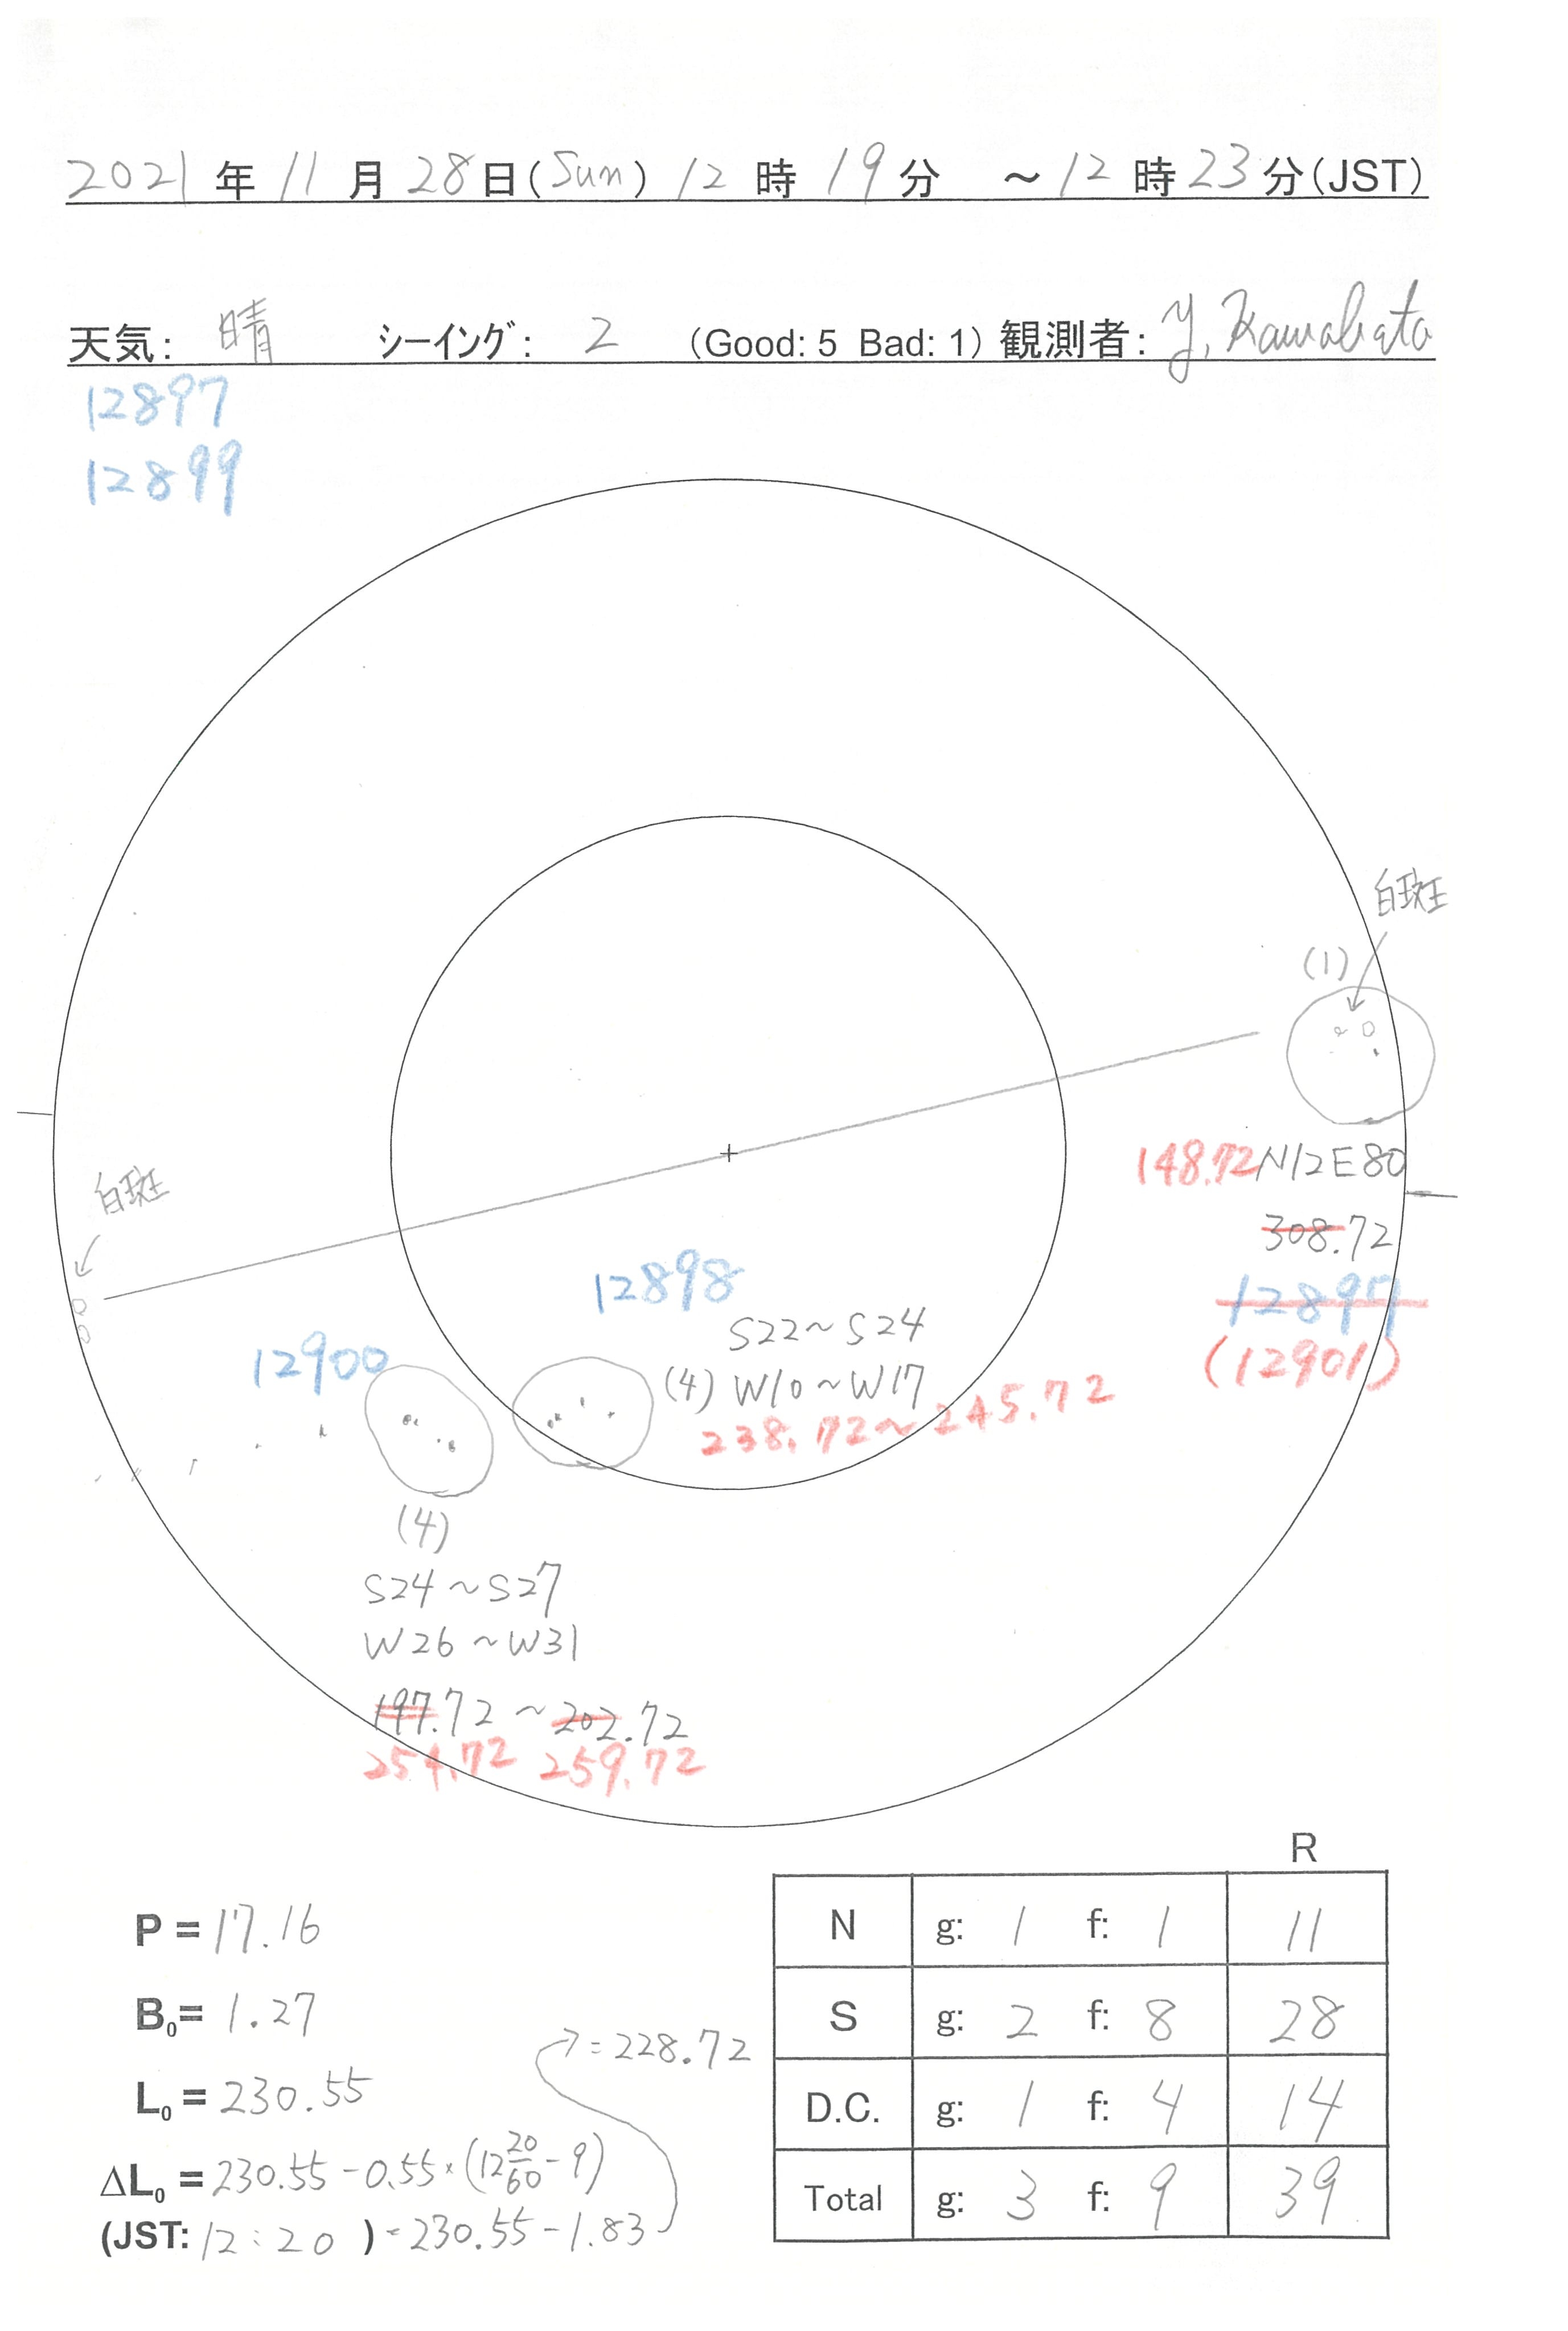 2021 年 11 月 28 日(Sun) 12 時 19 分 ～12 時 23 分(JST)
天気: 晴 シーイング: 2 (Good: 5 Bad: 1) 観測者: Y. Kawabata
12897
12899
白斑
(1)
148.72 N12E80
308.72
白斑
12897
(12901)
12898
S22～S24
(4) W10～W17
238.72～245.72
12900
(4)
S24～S27
W26～W31
197.72～202.72
254.72 259.72
R
P = 17.16
N g: 1 f: 1 11
B0= 1.27
S g: 2 f: 8 28
→ = 228.72
L0 = 230.55
D.C. g: 1 f: 4 14
ΔL0 = 230.55 - 0.55 × (12 20/60 - 9)
Total g: 3 f: 9 39
(JST: 12:20 ) = 230.55 - 1.83